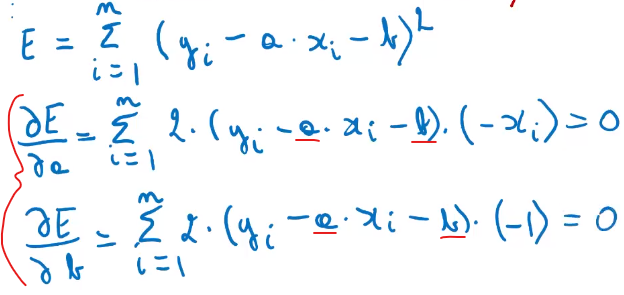 E = ∑_{i=1}^{n} (y_i - a · x_i - b)^2
∂E/∂a = ∑_{i=1}^{n} 2 · (y_i - a · x_i - b) · (-x_i) = 0
∂E/∂b = ∑_{i=1}^{n} 2 · (y_i - a · x_i - b) · (-1) = 0